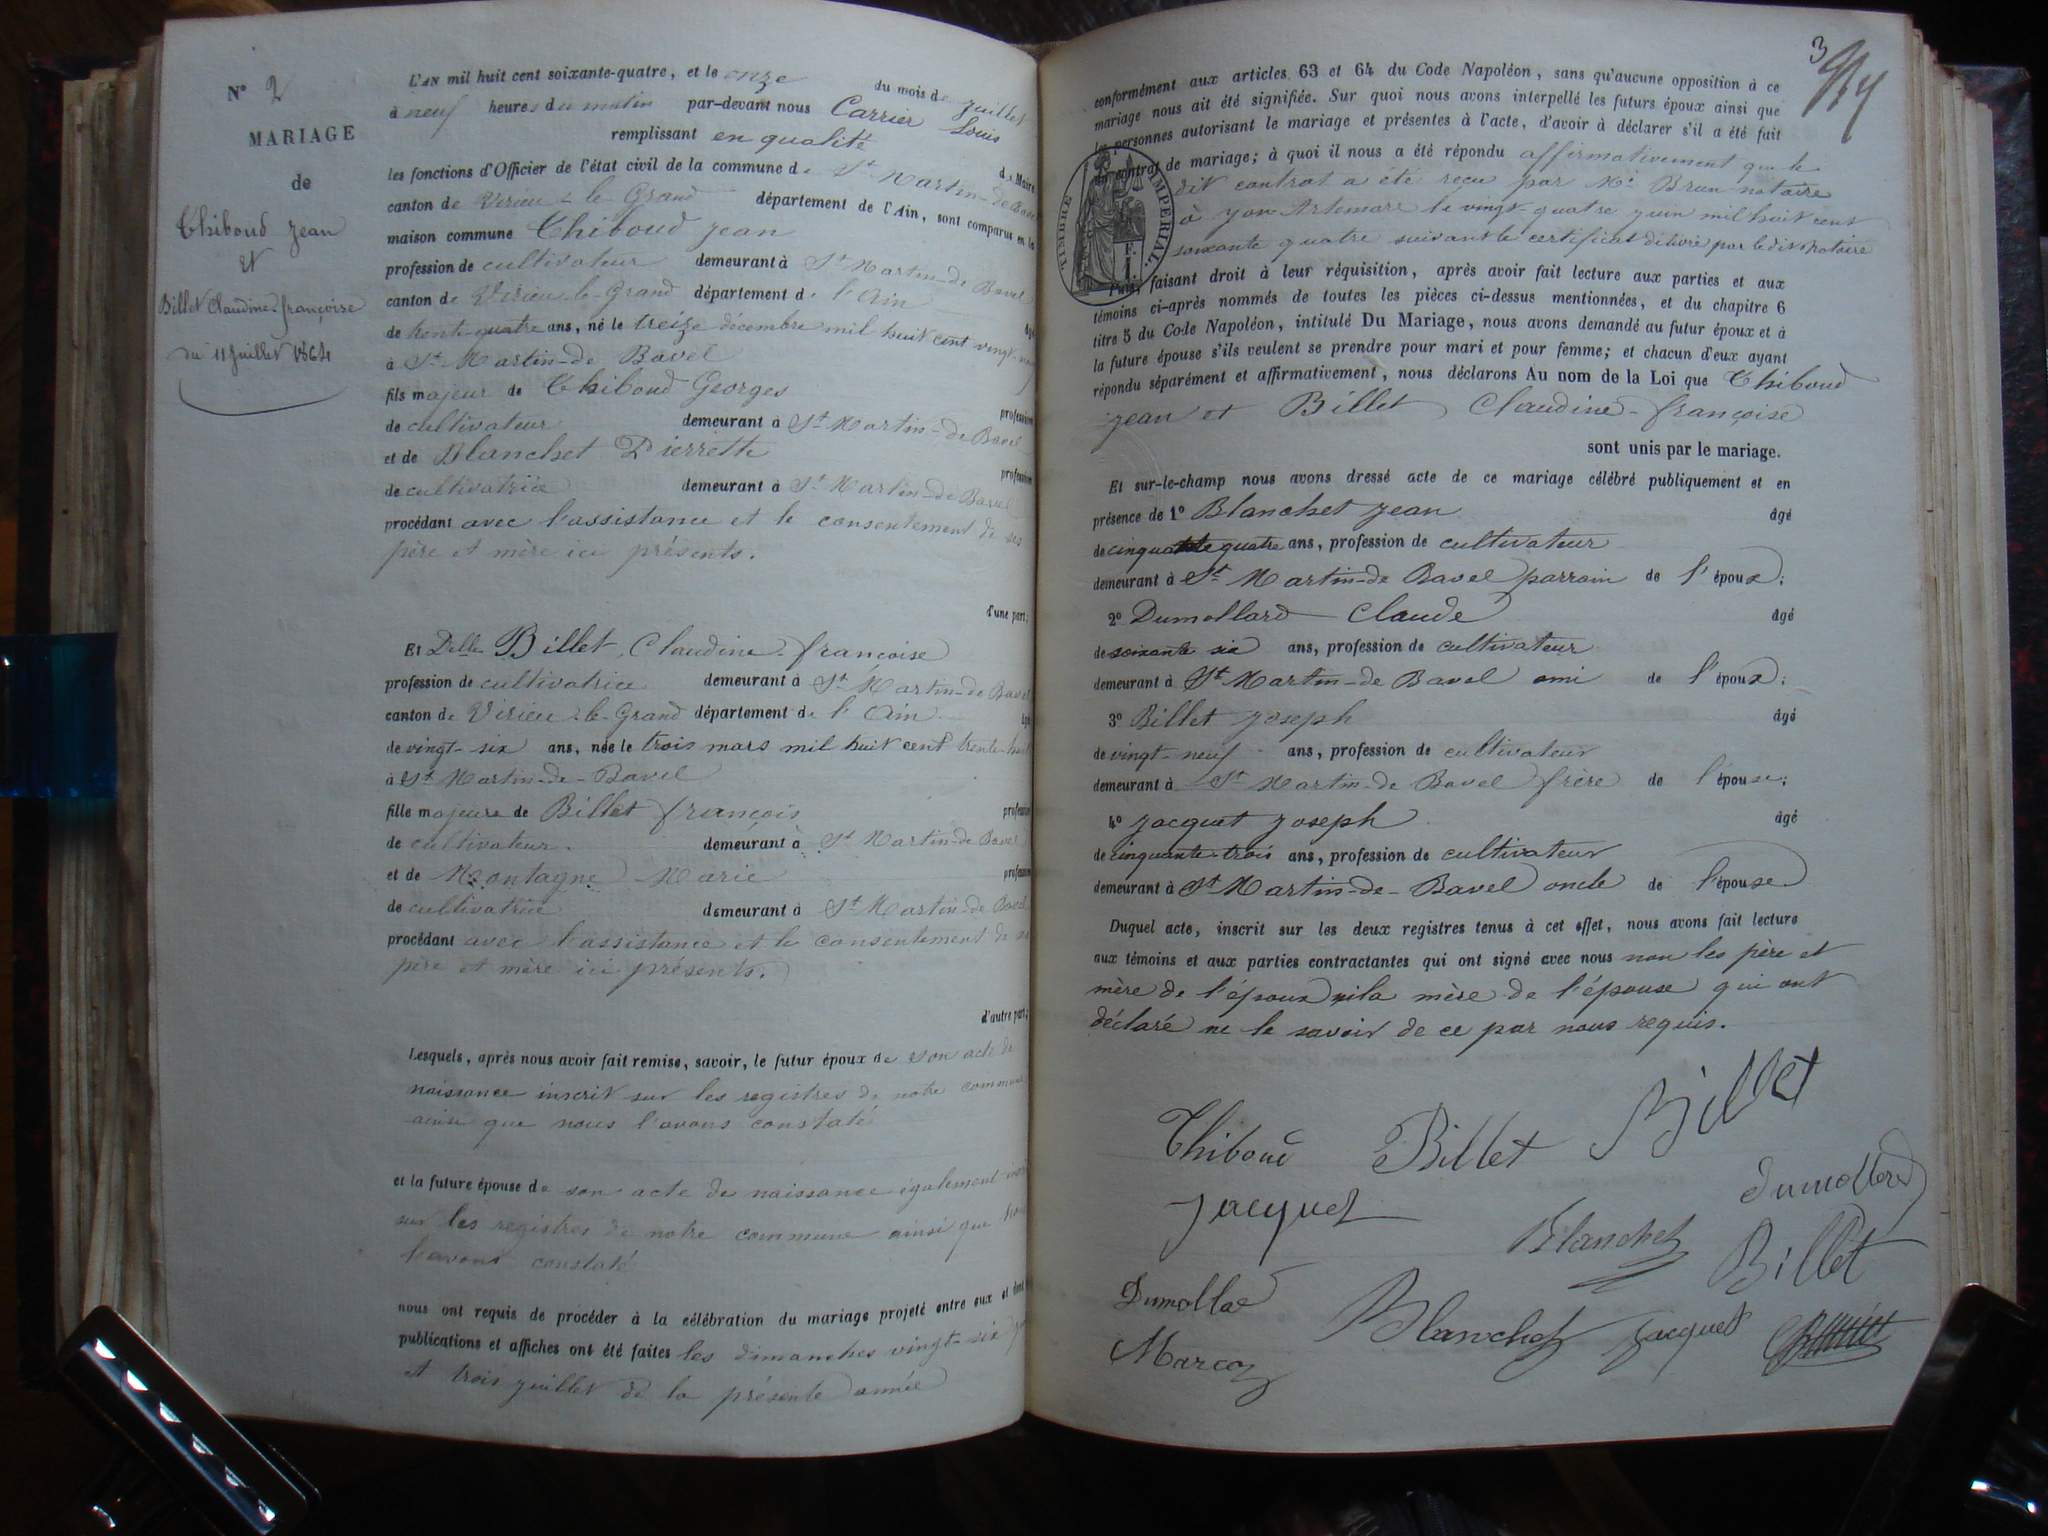 N° 2
MARIAGE
de
Thiboud Jean
Et
Billet Claudine-françoise
du 11 Juillet 1864
L'AN mil huit cent soixante-quatre, et le onze du mois de juillet
à neuf heures du matin par-devant nous Carrier Louis
remplissant en qualité de Maire
les fonctions d'Officier de l'état civil de la commune de St Martin-de Bavel
canton de Virieu-le-Grand département de l'Ain, sont comparus en la
maison commune Thiboud Jean
profession de cultivateur demeurant à St Martin-de Bavel
canton de Virieu-le-Grand département de l'Ain âgé
de trente-quatre ans, né le treize décembre mil huit cent vingt-neuf
à St Martin-de Bavel
fils majeur de Thiboud Georges profession
de cultivateur demeurant à St Martin-de Bavel
et de Blanchet Pierrette profession
de cultivatrice demeurant à St Martin-de Bavel
procédant avec l'assistance et le consentement de ses
père et mère ici présents.
d'une part;
Et Delle Billet, Claudine-françoise
profession de cultivatrice demeurant à St Martin-de Bavel
canton de Virieu-le-Grand département de l'Ain âgé
de vingt-six ans, née le trois mars mil huit cent trente-huit
à St Martin-de-Bavel
fille majeure de Billet françois profession
de cultivateur. demeurant à St Martin-de Bavel
et de Montagne Marie profession
de cultivatrice demeurant à St Martin-de Bavel
procédant avec l'assistance et le consentement de se
père et mère ici présents.
d'autre part;
Lesquels, après nous avoir fait remise, savoir, le futur époux de son acte de
naissance inscrit sur les registres de notre commune
ainsi que nous l'avons constaté
et la future épouse de son acte de naissance également inscrit
sur les registres de notre commune ainsi que nous
l'avons constaté
nous ont requis de procéder à la célébration du mariage projeté entre eux et dont les
publications et affiches ont été faites les dimanches vingt-six juin
et trois juillet de la présente année
3
conformément aux articles 63 et 64 du Code Napoléon, sans qu'aucune opposition à ce
mariage nous ait été signifiée. Sur quoi nous avons interpellé les futurs époux ainsi que
les personnes autorisant le mariage et présentes à l'acte, d'avoir à déclarer s'il a été fait
un contrat de mariage; à quoi il nous a été répondu affirmativement que le
dit contrat a été reçu par Me Brun notaire
à yon Artemare le vingt-quatre juin mil huit cent
soixante quatre suivant le certificat délivré par le dit notaire
TIMBRE IMPERIAL
F.
1.
Puis, faisant droit à leur réquisition, après avoir fait lecture aux parties et aux
témoins ci-après nommés de toutes les pièces ci-dessus mentionnées, et du chapitre 6
titre 5 du Code Napoléon, intitulé Du Mariage, nous avons demandé au futur époux et à
la future épouse s'ils veulent se prendre pour mari et pour femme; et chacun d'eux ayant
répondu séparément et affirmativement, nous déclarons Au nom de la Loi que Thiboud
Jean et Billet Claudine-françoise
sont unis par le mariage.
Et sur-le-champ nous avons dressé acte de ce mariage célébré publiquement et en
présence de 1° Blanchet Jean âgé
de cinquante quatre ans, profession de cultivateur
demeurant à St Martin-de Bavel parrain de l'époux;
2° Dumollard Claude âgé
de soixante six ans, profession de cultivateur
demeurant à St Martin-de Bavel ami de l'époux;
3° Billet Joseph âgé
de vingt-neuf ans, profession de cultivateur
demeurant à St Martin-de Bavel frère de l'épouse;
4° Jacquet Joseph âgé
de cinquante-trois ans, profession de cultivateur
demeurant à St Martin-de-Bavel oncle de l'épouse
Duquel acte, inscrit sur les deux registres tenus à cet effet, nous avons fait lecture
aux témoins et aux parties contractantes qui ont signé avec nous non les père et
mère de l'époux ni la mère de l'épouse qui ont
déclaré ne le savoir de ce par nous requis.
Thiboud Billet Billet
Jacquet Blanchet Dumollard
Billet
Dumollard Blanchet Jacquet
Marcoz